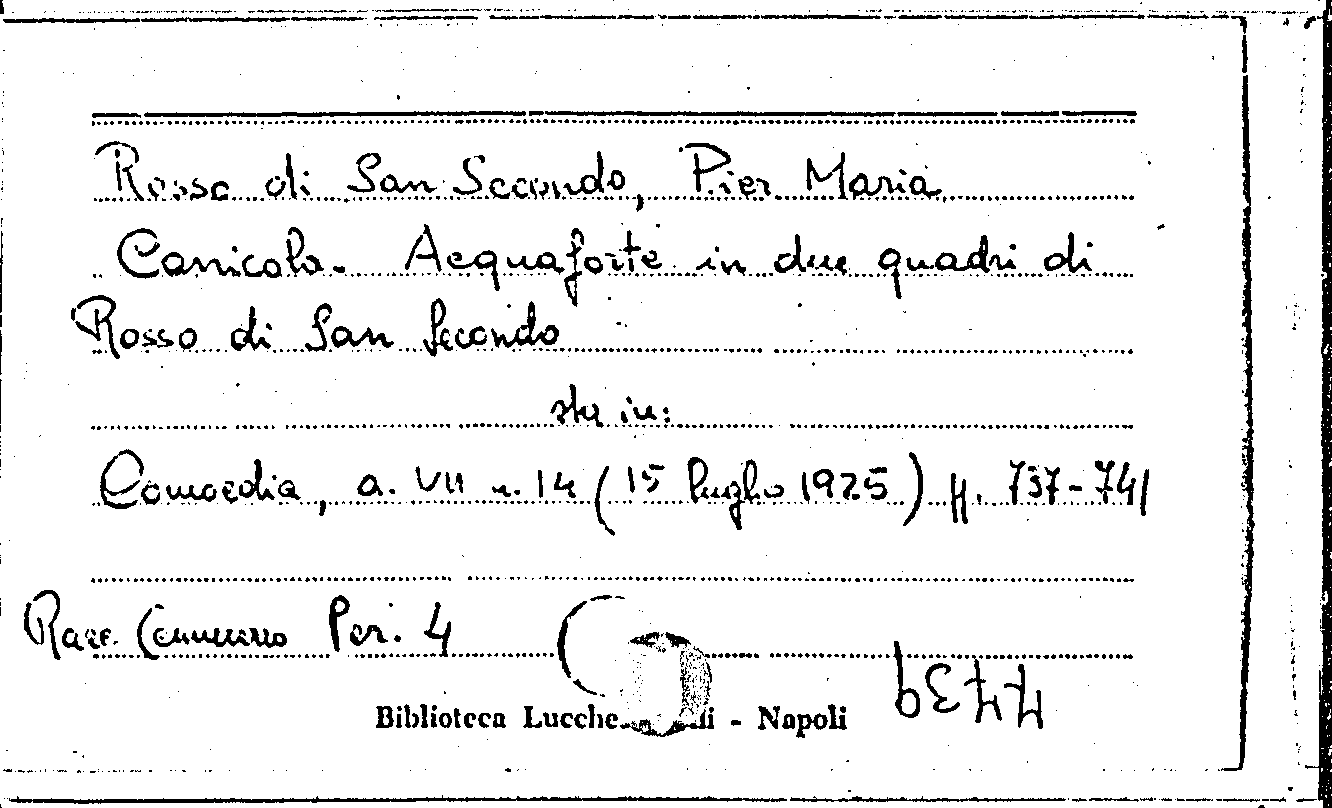 Rosso di San Secondo, Pier Maria
Canicola. Acquaforte in due quadri di
Rosso di San Secondo
sta in:
Comoedia, a. VII n. 14 (15 luglio 1925) pp. 737-741
Racc. Per. 4
Biblioteca - Napoli